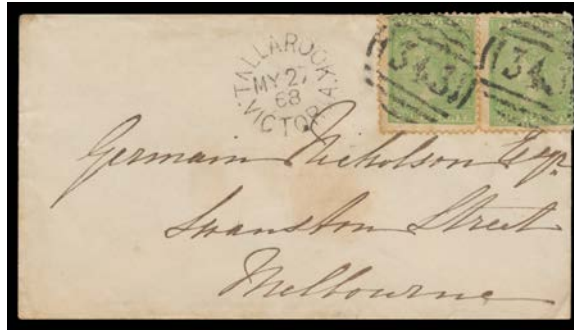 TALLAROOK
MY 27
68
VICTORIA
343
343
Germain Nicholson Esqr.
Swanston Street
Melbourne